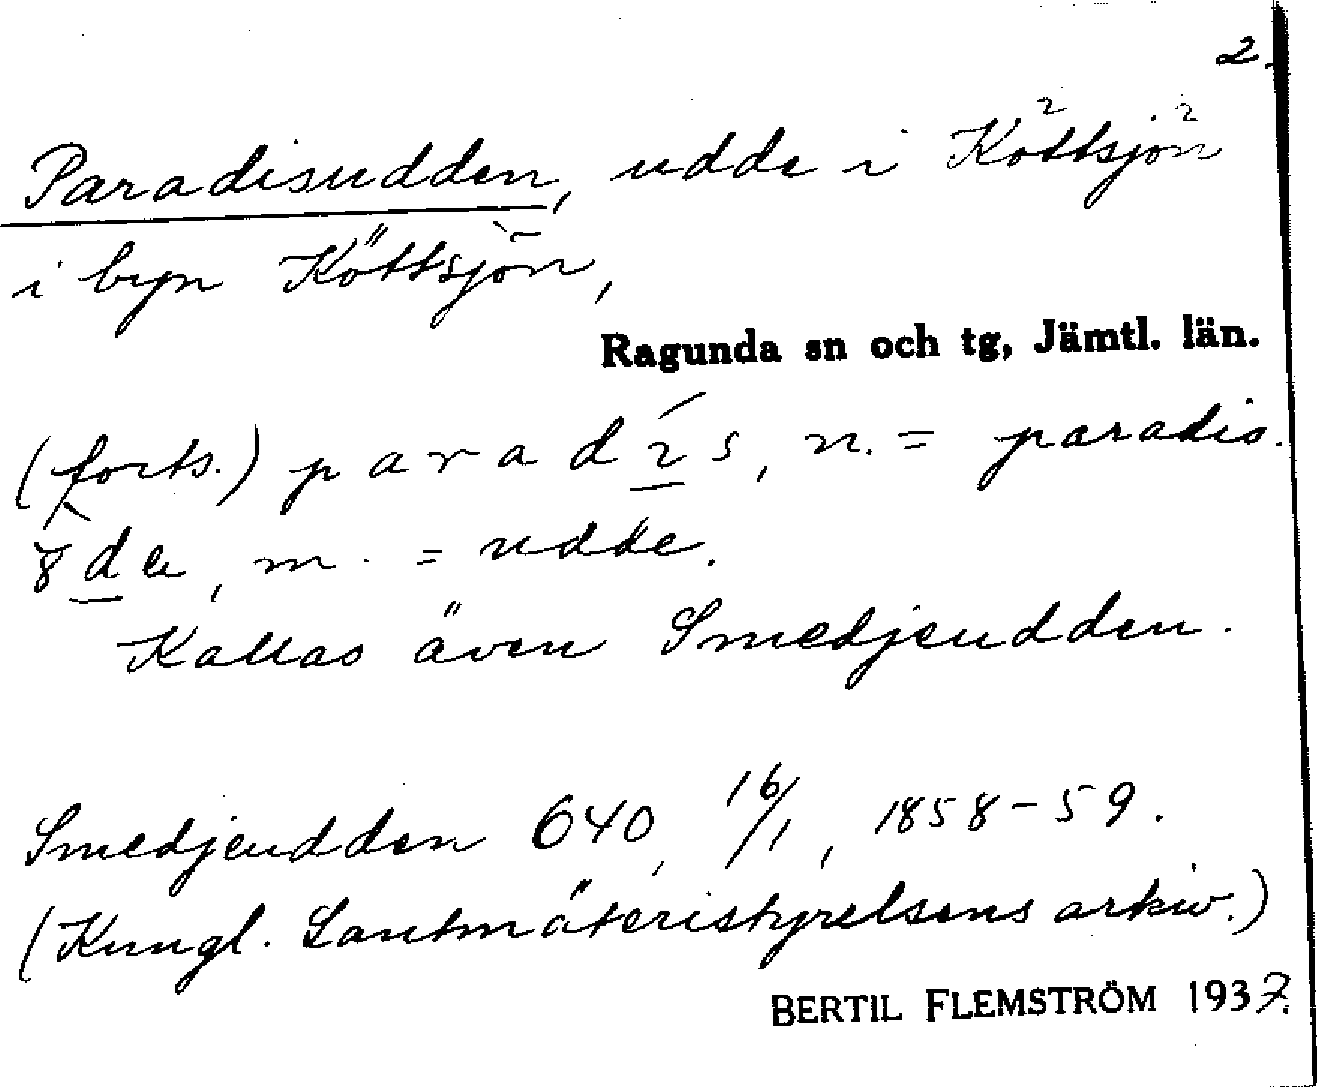 2.
Paradisudden, udde i Köttsjön
i byn Köttsjön,
Ragunda sn och tg, Jämtl. län.
(forts.) n. = paradis.
m. = udde.
Kallas även Smedjeudden.
Smedjeudden 640, 16/1, 1858-59.
(Kungl. Lantmäteristyrelsens arkiv.)
BERTIL FLEMSTRÖM 1937.